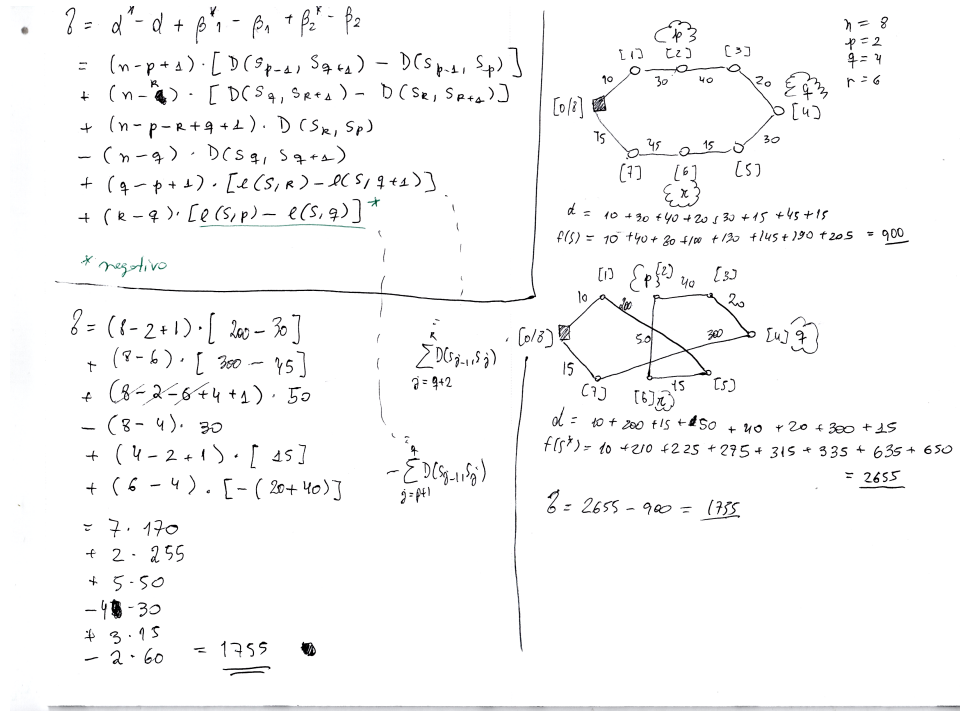 δ = α* - α + β*1 - β1 + β2* - β2
= (n-p+1) · [D(Sp-1, Sq+1) - D(Sp-1, Sp)]
+ (n-R) · [D(Sq, SR+1) - D(SR, SR+1)]
+ (n-p-R+q+1) · D(SR, Sp)
- (n-q) · D(Sq, Sq+1)
+ (q-p+1) · [l(S,R) - l(S,q+1)]
+ (R-q) · [l(S,p) - l(S,q)] *
* negativo
δ = (8-2+1) · [200-30]
+ (8-6) · [300-45]
+ (8-2-6+4+1) · 50
- (8-4) · 30
+ (4-2+1) · [15]
+ (6-4) · [-(20+40)]
= 7 · 170
+ 2 · 255
+ 5 · 50
- 4 · 30
+ 3 · 15
- 2 · 60 = 1755
=
R
∑ D(Sj-1, Sj)
j=q+2
=
q
- ∑ D(Sj-1, Sj)
j=p+1
n = 8
p = 2
q = 4
r = 6
{p}
[1] [2] [3]
30 40
20
{q}
[0/8] [4]
75 45 15 30
[7] [6] [5]
{r}
α = 10 + 30 + 40 + 20 + 30 + 15 + 45 + 15
f(S) = 10 + 40 + 80 + 100 + 130 + 145 + 190 + 205 = 900
[1] {p} [2] 40 [3]
10 200 20
[0/8] 50 300 [4] q}
15
[7] [6] r} 15 [5]
α = 10 + 200 + 15 + 50 + 40 + 20 + 300 + 15
f(S*) = 10 + 210 + 225 + 275 + 315 + 335 + 635 + 650
= 2655
δ = 2655 - 900 = 1755